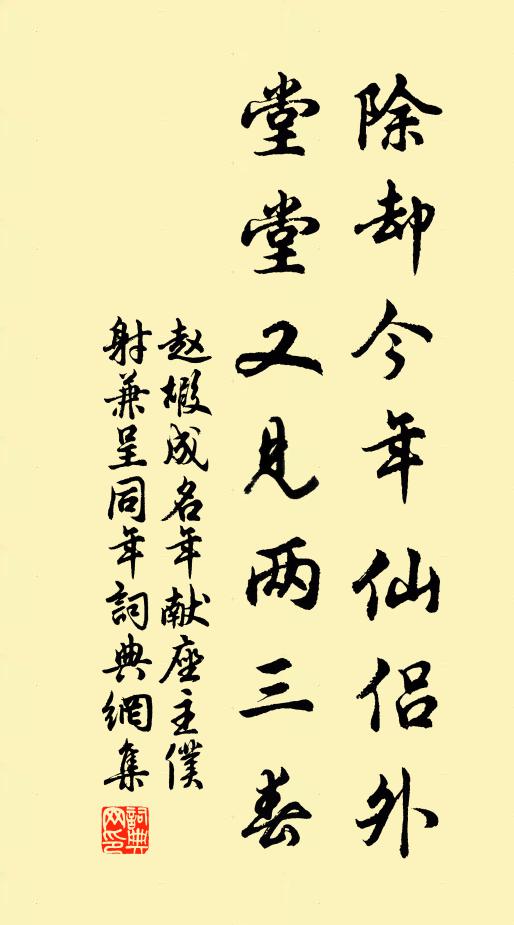 除却今年仙侣外
堂堂又见两三春
赵嘏成名年献座主僕
射兼呈同年詞典網集
詞典网印